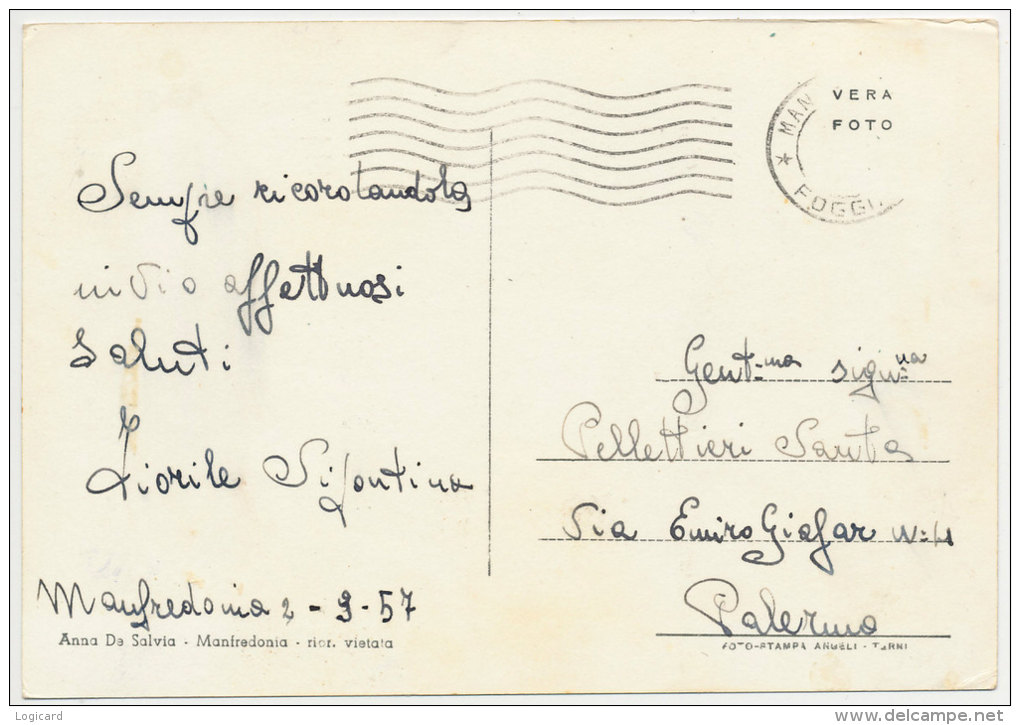 VERA
FOTO
★ MAN
FOGGI
Sempre ricordandola
invio affettuosi
saluti
Fiorile Sipontina
Manfredonia 2-9-57
Anna De Salvia - Manfredonia - ripr. vietata
Gent.ma sign.na
Pellettieri Santa
Via Emiro Giafar N:
Palermo
FOTO-STAMPA ANGELI - TERNI
Logicard
www.delcampe.net